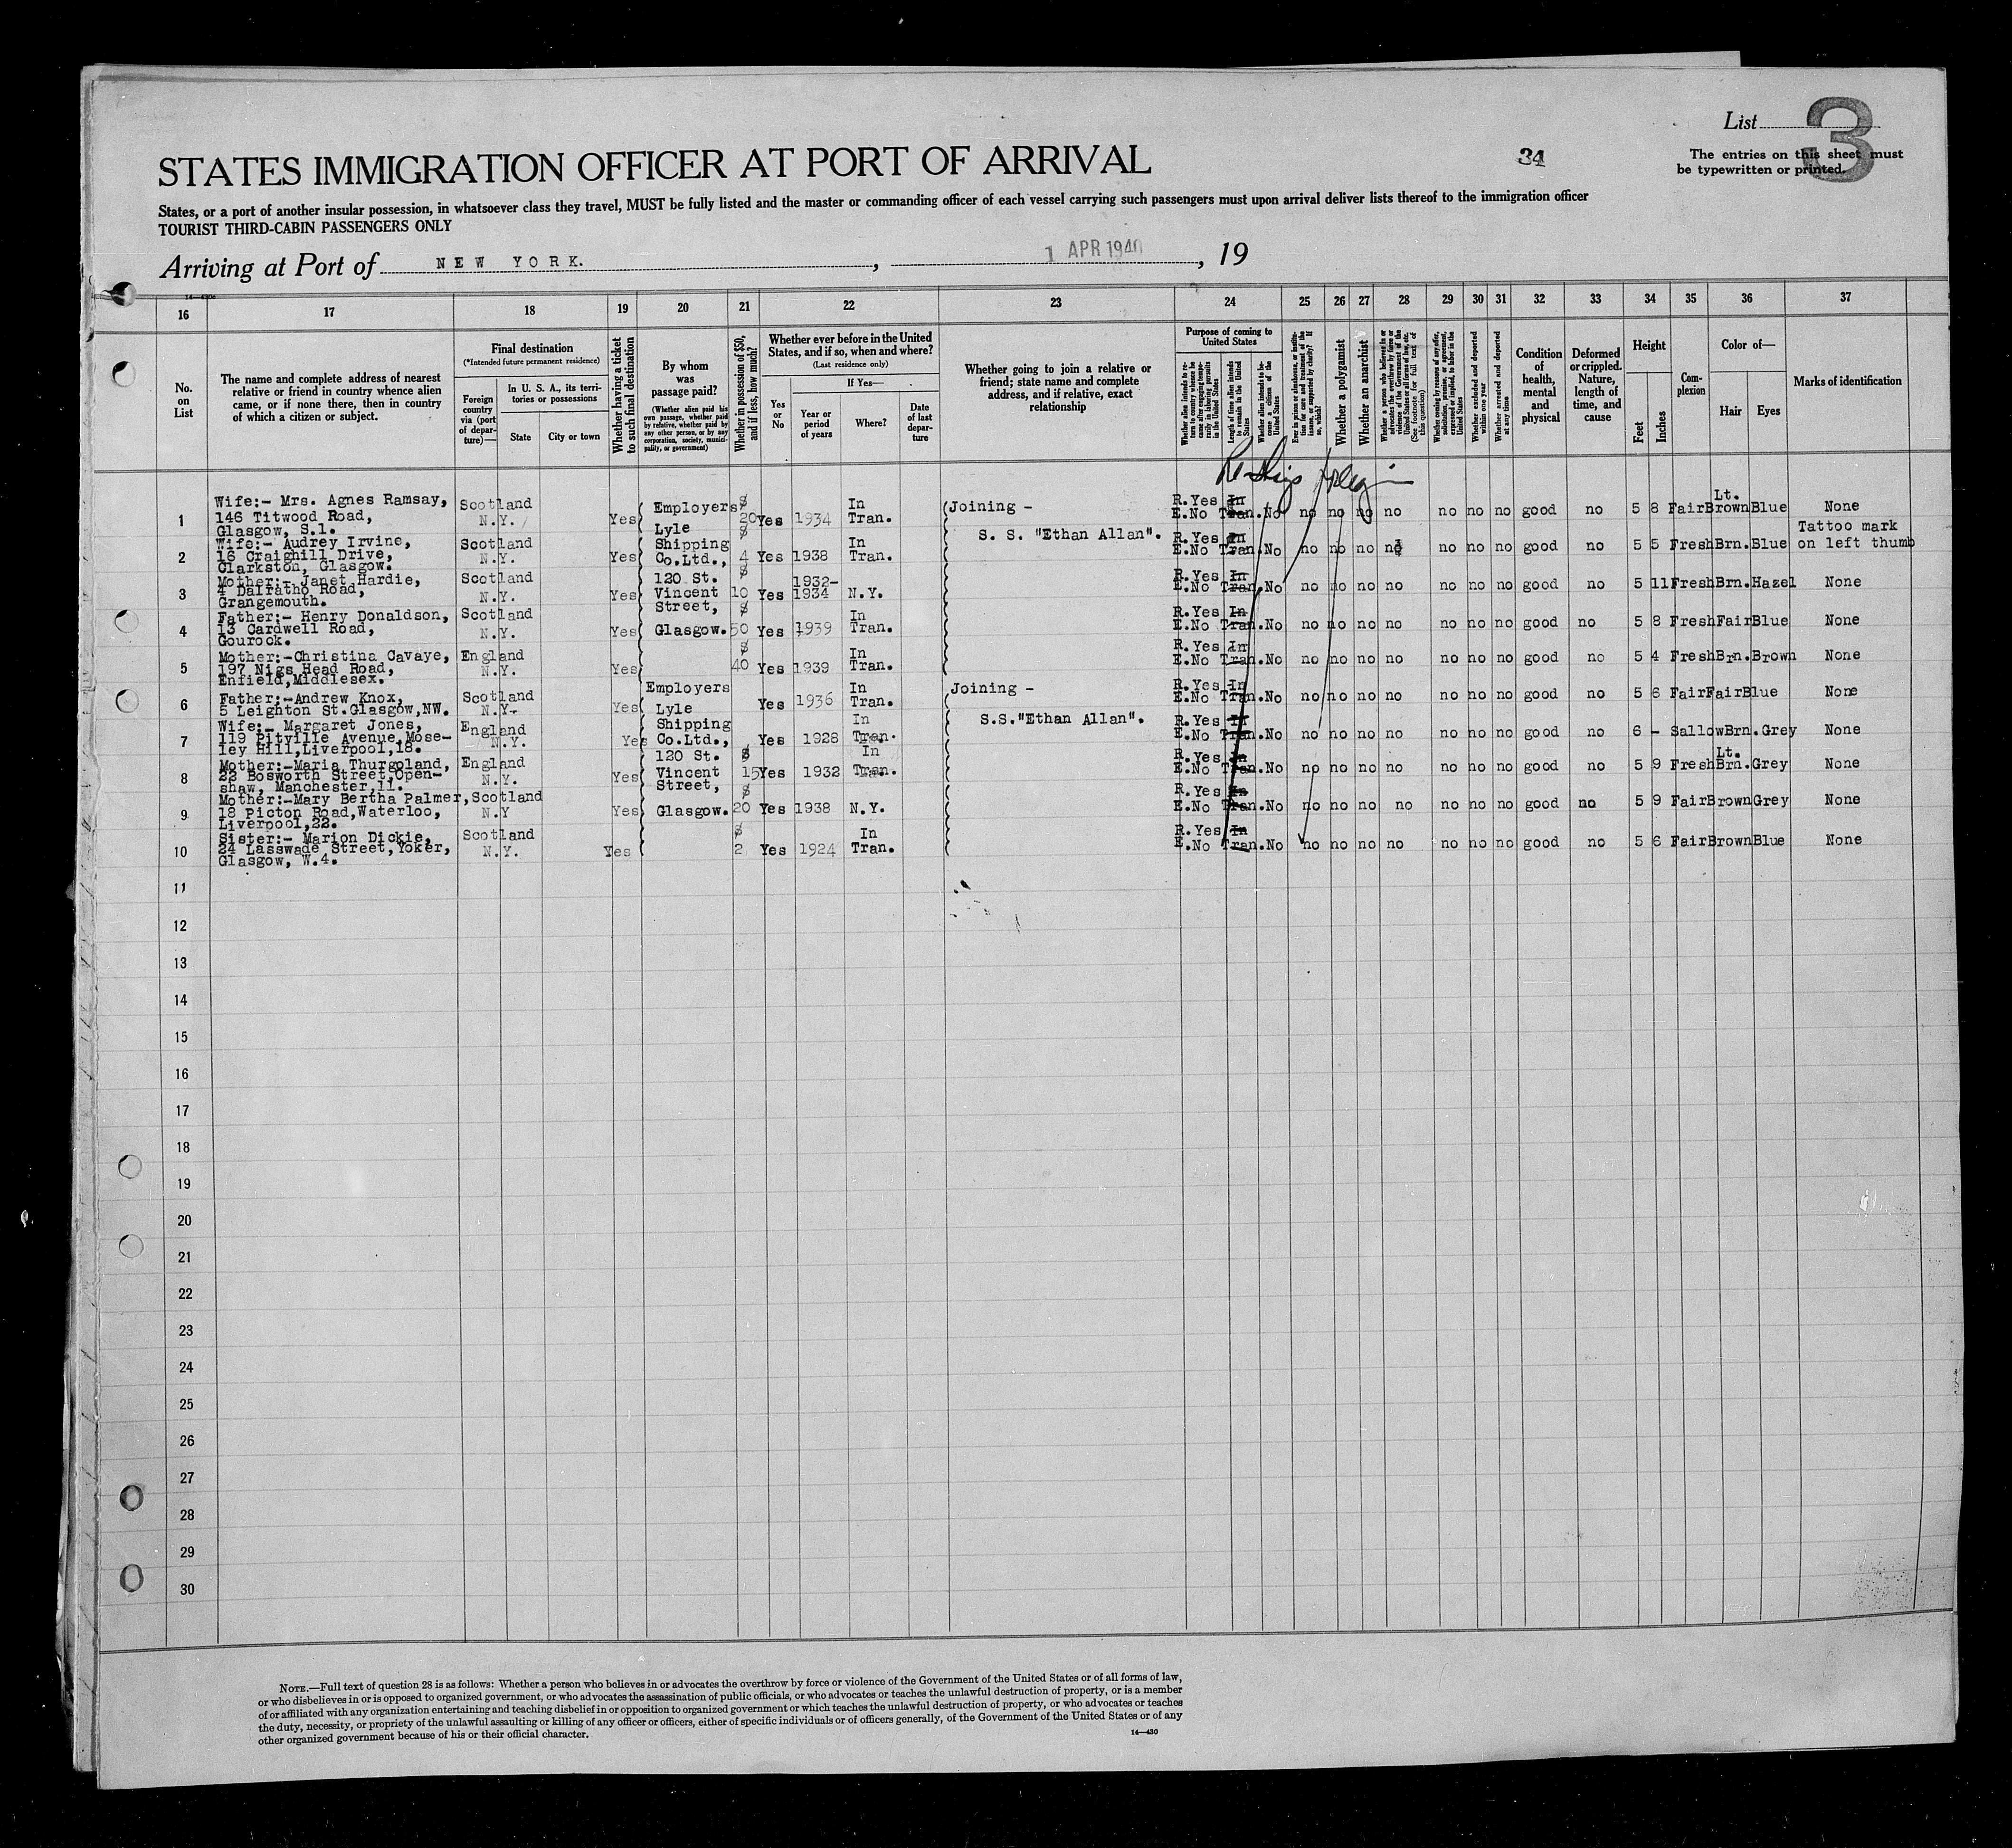 List 3
The entries on this sheet must
be typewritten or printed.
34
STATES IMMIGRATION OFFICER AT PORT OF ARRIVAL
States, or a port of another insular possession, in whatsoever class they travel, MUST be fully listed and the master or commanding officer of each vessel carrying such passengers must upon arrival deliver lists thereof to the immigration officer
TOURIST THIRD-CABIN PASSENGERS ONLY
Arriving at Port of NEW YORK. , 1 APR 1940 , 19
16 17 18 19 20 21 22 23 24 25 26 27 28 29 30 31 32 33 34 35 36 37
No. on List
The name and complete address of nearest
relative or friend in country whence alien
came, or if none there, then in country
of which a citizen or subject.
Final destination
(*Intended future permanent residence)
Foreign country via (port of departure)—
In U. S. A., its territories or possessions
State City or town
Whether having a ticket to such final destination
By whom was passage paid?
(Whether alien paid his own passage, whether paid by relative, whether paid by any other person, or by any corporation, society, municipality, or government)
Whether in possession of $50, and if less, how much?
Whether ever before in the United
States, and if so, when and where?
(Last residence only)
Yes or No
If Yes—
Year or period of years
Where?
Date of last departure
Whether going to join a relative or
friend; state name and complete
address, and if relative, exact
relationship
Purpose of coming to United States
Whether alien intends to return to country whence he came after engaging temporarily in laboring pursuits in the United States
Length of time alien intends to remain in the United States
Whether alien intends to become a citizen of the United States
Ever in prison or almshouse, or institution for care and treatment of the insane, or supported by charity? If so, which?
Whether a polygamist
Whether an anarchist
Whether a person who believes in or advocates the overthrow by force or violence of the Government of the United States or all forms of law, etc. (See footnote for full text of this question)
Whether coming by reasons of any offer, solicitation, promise, or agreement, expressed or implied, to labor in the United States
Whether excluded and deported within one year
Whether arrested and deported at any time
Condition of health, mental and physical
Deformed or crippled. Nature, length of time, and cause
Height
Feet Inches
Complexion
Color of—
Hair Eyes
Marks of identification
1 Wife:- Mrs. Agnes Ramsay, 146 Titwood Road, Glasgow, S.1. Scotland N.Y. Yes $ 20 Yes 1934 In Tran. R.Yes In E.No Tran.No no no no no no no no good no 5 8 Fair Lt. Brown Blue None
2 Wife:- Audrey Irvine, 16 Craighill Drive, Clarkston, Glasgow. Scotland N.Y. Yes $ 4 Yes 1938 In Tran. R.Yes In E.No Tran.No no no no no no no no good no 5 5 Fresh Brn. Blue Tattoo mark on left thumb
3 Mother:- Janet Hardie, 4 Dalratho Road, Grangemouth. Scotland N.Y. Yes $ 10 Yes 1932-1934 N.Y. R.Yes In E.No Tran.No no no no no no no no good no 5 11 Fresh Brn. Hazel None
4 Father:- Henry Donaldson, 13 Cardwell Road, Gourock. Scotland N.Y. Yes $ 50 Yes 1939 In Tran. R.Yes In E.No Tran.No no no no no no no no good no 5 8 Fresh Fair Blue None
5 Mother:-Christina Cavaye, 197 Nigs Head Road, Enfield,Middlesex. England N.Y. Yes $ 40 Yes 1939 In Tran. R.Yes In E.No Tran.No no no no no no no no good no 5 4 Fresh Brn. Brown None
Employers Lyle Shipping Co.Ltd., 120 St. Vincent Street, Glasgow.
Joining -
S. S. "Ethan Allan".
6 Father:-Andrew Knox, 5 Leighton St.Glasgow,NW. Scotland N.Y. Yes Yes 1936 In Tran. R.Yes In E.No Tran.No no no no no no no no good no 5 6 Fair Fair Blue None
7 Wife:- Margaret Jones, 119 Pitville Avenue,Moseley Hill,Liverpool,18. England N.Y. Yes Yes 1928 In Tran. R.Yes In E.No Tran.No no no no no no no no good no 6 - Sallow Brn. Grey None
8 Mother:-Maria Thurgoland, 22 Bosworth Street,Openshaw, Manchester,11. England N.Y. Yes $ 15 Yes 1932 In Tran. R.Yes In E.No Tran.No no no no no no no no good no 5 9 Fresh Lt. Brn. Grey None
9 Mother:-Mary Bertha Palmer, 18 Picton Road,Waterloo, Liverpool,22. Scotland N.Y Yes $ 20 Yes 1938 N.Y. R.Yes In E.No Tran.No no no no no no no no good no 5 9 Fair Brown Grey None
10 Sister:- Marion Dickie, 24 Lasswade Street,Yoker, Glasgow, W.4. Scotland N.Y. Yes $ 2 Yes 1924 In Tran. R.Yes In E.No Tran.No no no no no no no no good no 5 6 Fair Brown Blue None
Employers Lyle Shipping Co.Ltd., 120 St. Vincent Street, Glasgow.
Joining -
S.S."Ethan Allan".
11
12
13
14
15
16
17
18
19
20
21
22
23
24
25
26
27
28
29
30
NOTE.—Full text of question 28 is as follows: Whether a person who believes in or advocates the overthrow by force or violence of the Government of the United States or of all forms of law,
or who disbelieves in or is opposed to organized government, or who advocates the assassination of public officials, or who advocates or teaches the unlawful destruction of property, or is a member
of or affiliated with any organization entertaining and teaching disbelief in or opposition to organized government or which teaches the unlawful destruction of property, or who advocates or teaches
the duty, necessity, or propriety of the unlawful assaulting or killing of any officer or officers, either of specific individuals or of officers generally, of the Government of the United States or of any
other organized government because of his or their official character.
14—430